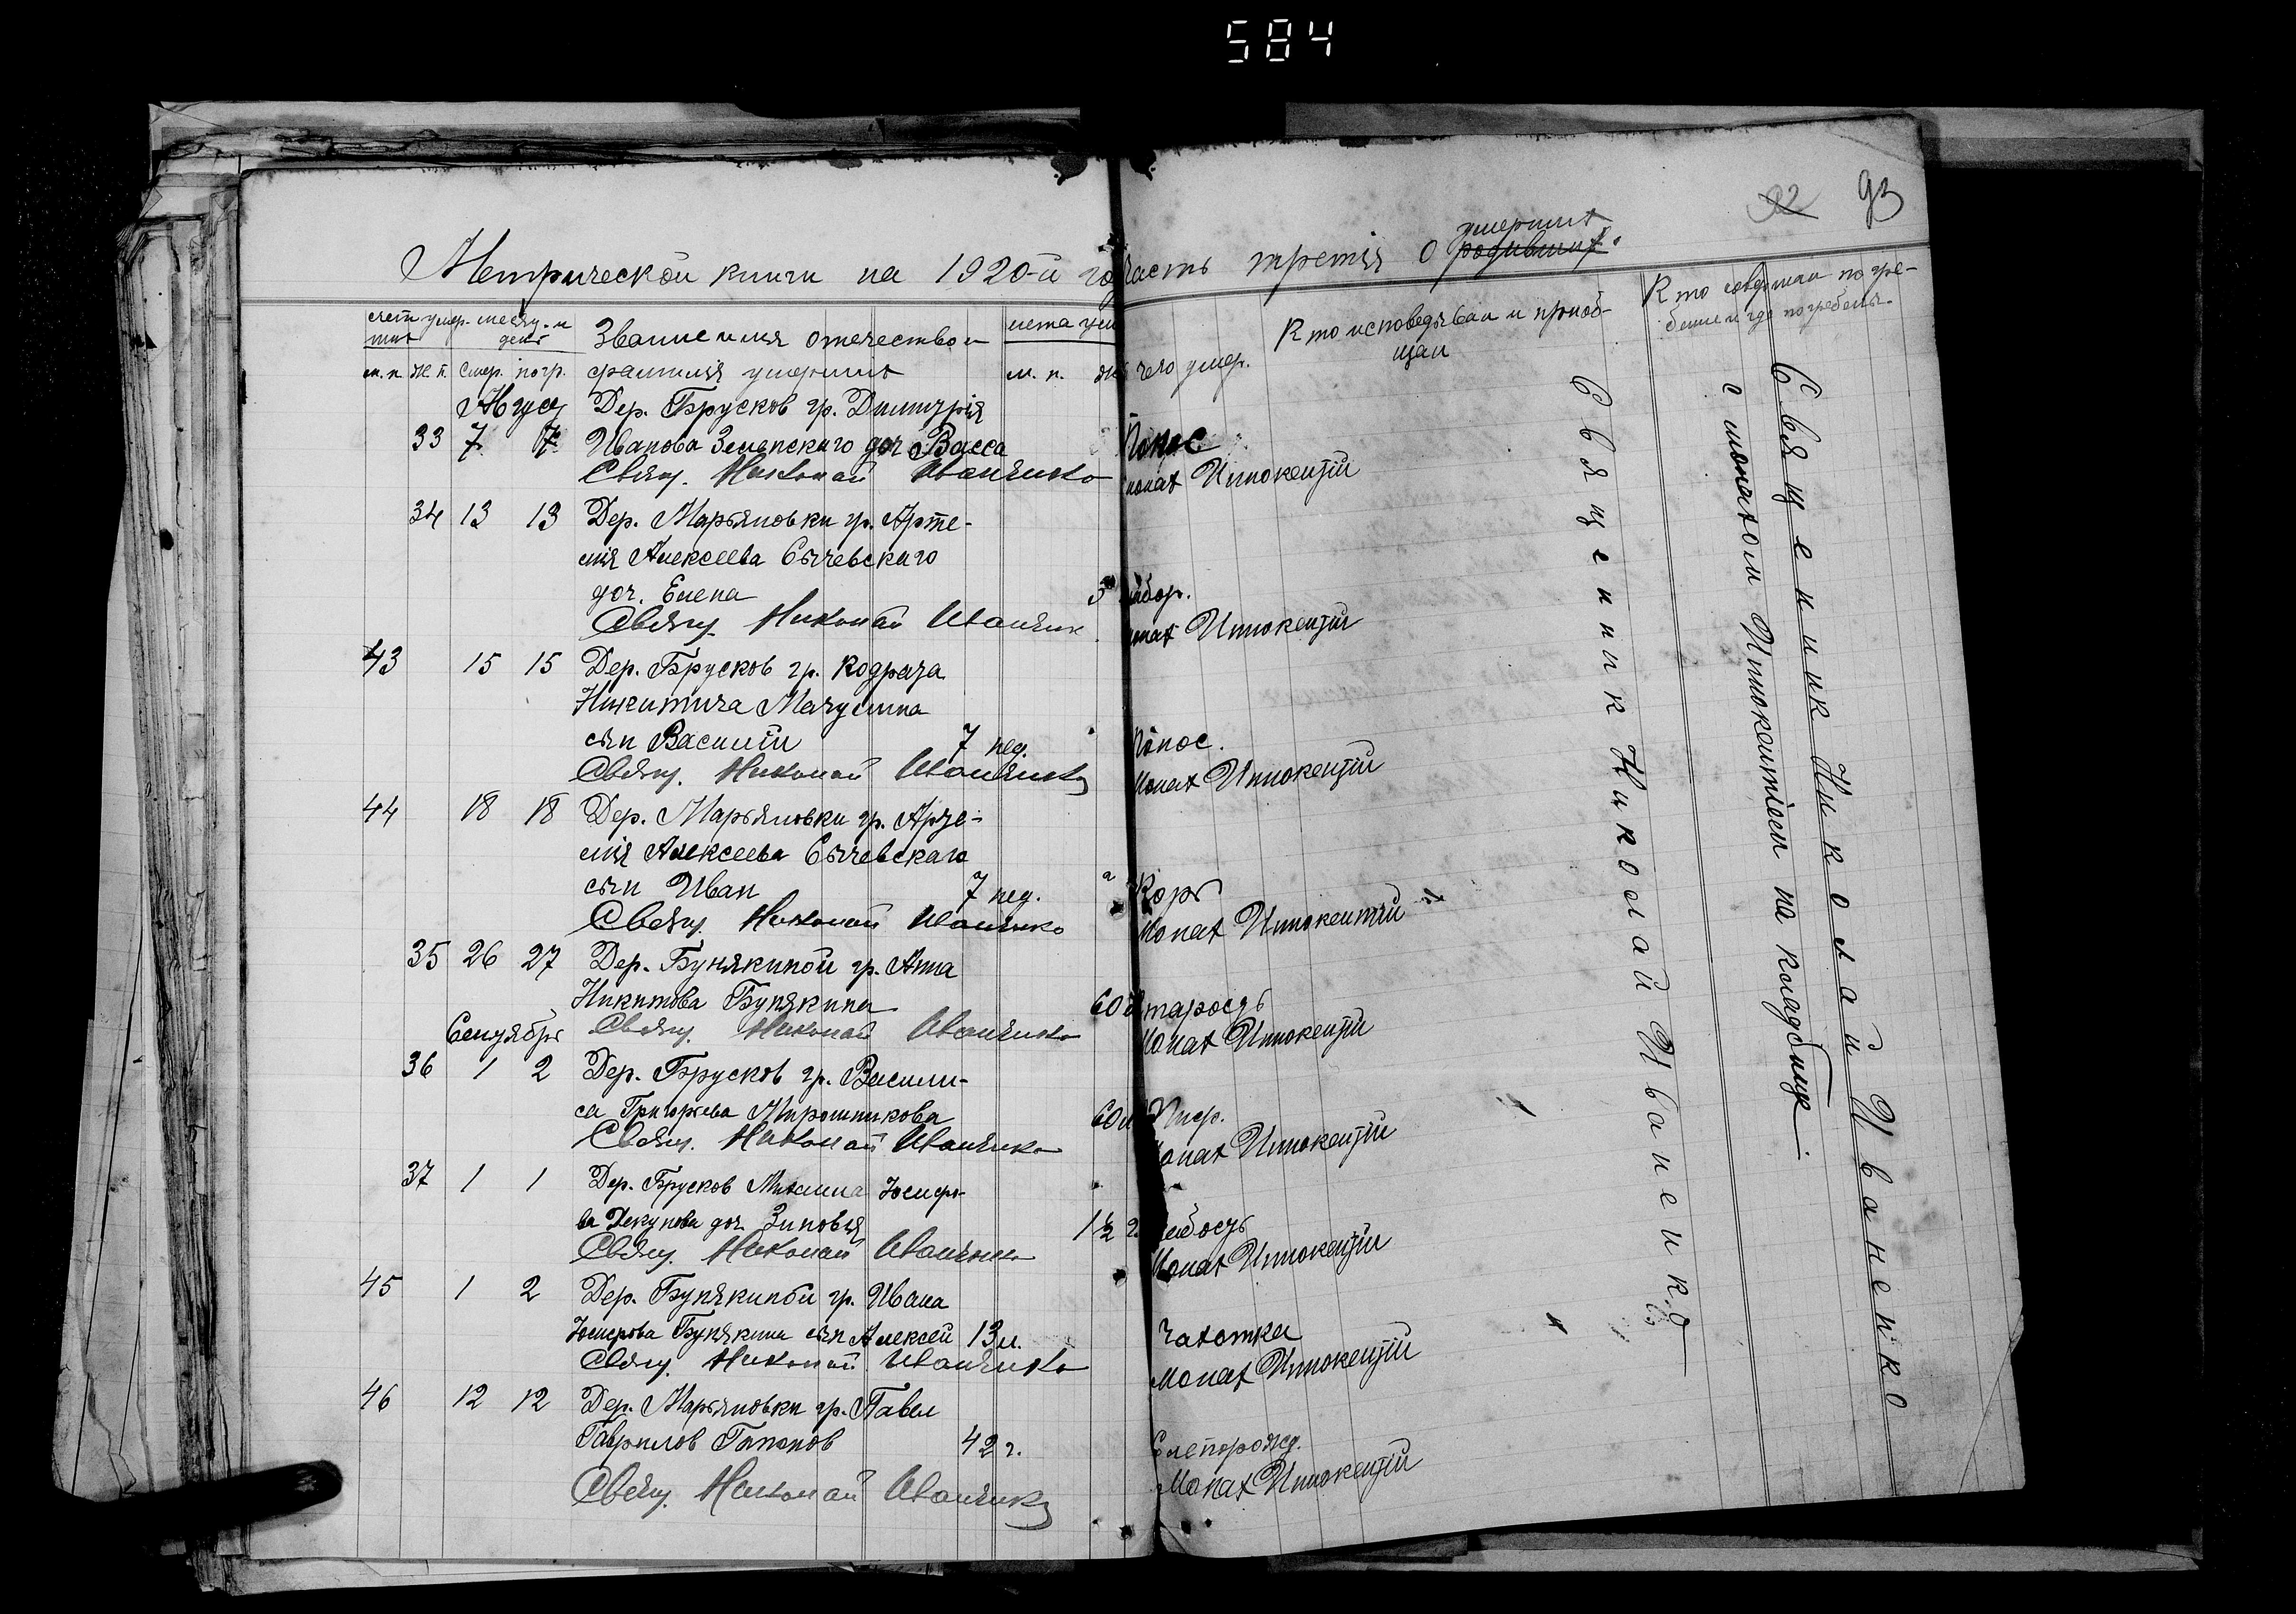 584
92 93
умерших
Метрической книги на 1920-й год часть третія о родивших.
счет умер- месяц и
ших день
Звание имя отечество и
лета уме
Кто исповедывал и приоб-
Кто совершал погре-
м. п. ж. п. смер. погр.
фамилия умерших
м. п. ж
чего умер.
щал
бение и где погребены.
Август Дер. Брусков гр. Димитрія
33 7 7 Иванова Зеленского доч Васса Понос
Свящ. Николай Иваненко монах Иннокентій
34 13 13 Дер. Марьяновки гр. Арте-
мія Алексеева Сычевскаго
доч. Елена 5
Свящ. Николай Иваненк монах Иннокентій
43 15 15 Дер. Брусков гр. Кодрата
Никитича Мачулина
сын Василій 7 нед. Понос.
Свящ. Николай Иваненко Монах Иннокентій
44 18 18 Дер. Марьяновки гр. Арте-
мія Алексеева Сычевскаго
сын Иван 7 нед. Корь
Свящ. Николай Иваненко Монах Иннокентій
35 26 27 Дер. Бунякиной гр. Анна
Никитова Бунякина 60 л старость
Сентябрь Свящ. Николай Иваненко Монах Иннокентій
36 1 2 Дер. Брусков гр. Васили-
са Григорьева Мирошникова 60 л Тиф.
Свящ. Николай Иваненко Монах Иннокентій
37 1 1 Дер. Брусков Михаила Іосифо-
ва Текунова доч. Зиновья 1 ½ г. слабость
Свящ. Николай Иваненко Монах Иннокентій
45 1 2 Дер. Бунякиной гр. Ивана
Іосифова Бунякина сын Алексей 13 л. Чахотка
Свящ. Николай Иваненко Монах Иннокентій
46 12 12 Дер. Марьяновки гр. Павел
Гаврилов Гапонов 42 г.
Свящ. Николай Иваненко Монах Иннокентій
Священник Николай Иваненко
Священник Николай Иваненко
с монахом Иннокентіем на кладбище